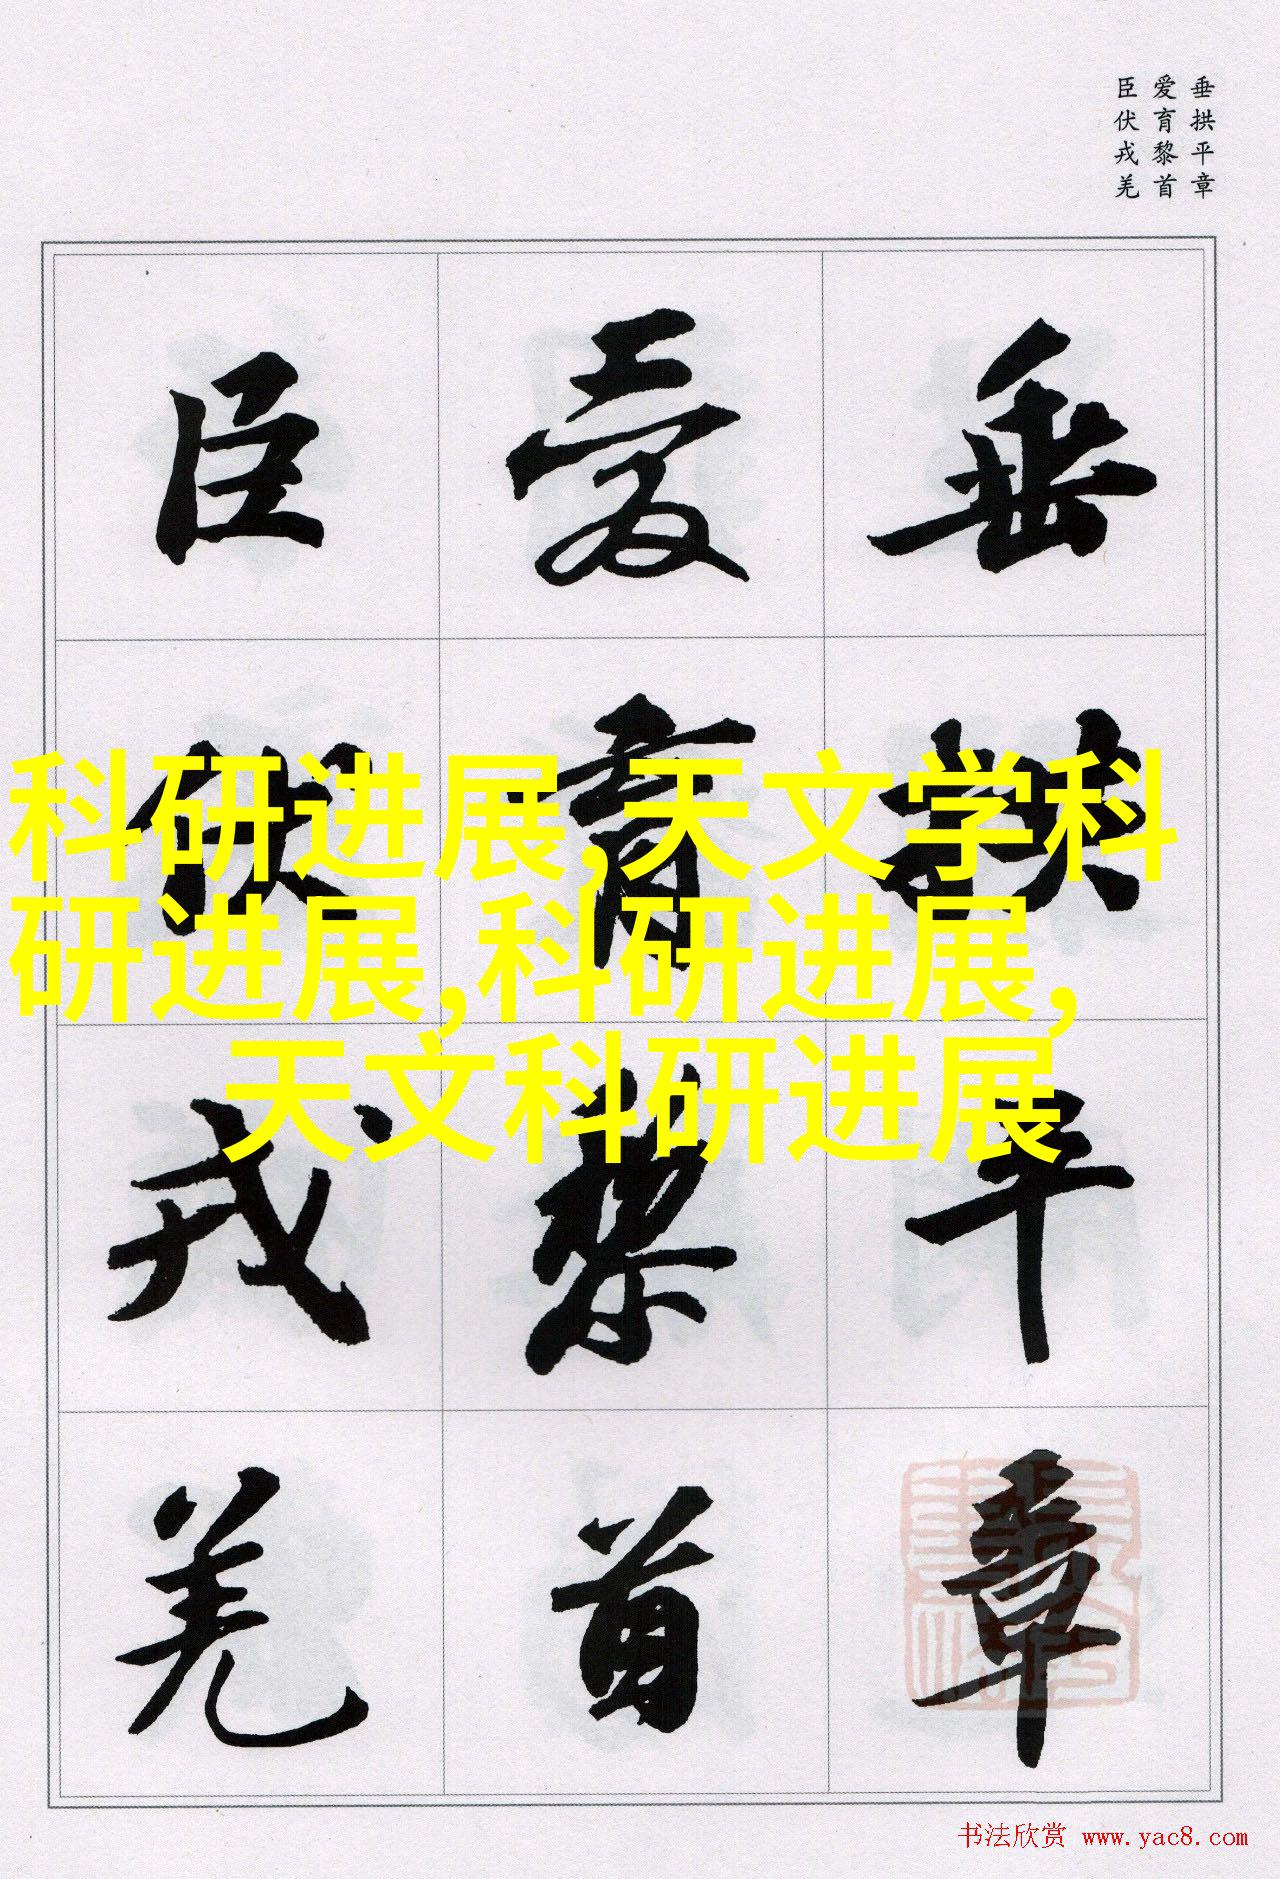 垂拱平章
爱育黎首
臣伏戎羌
垂拱平章
爱育黎首
臣伏戎羌
科研进展,天文学科
研进展,科研进展,
天文科研进展
书法欣赏 www.yac8.com